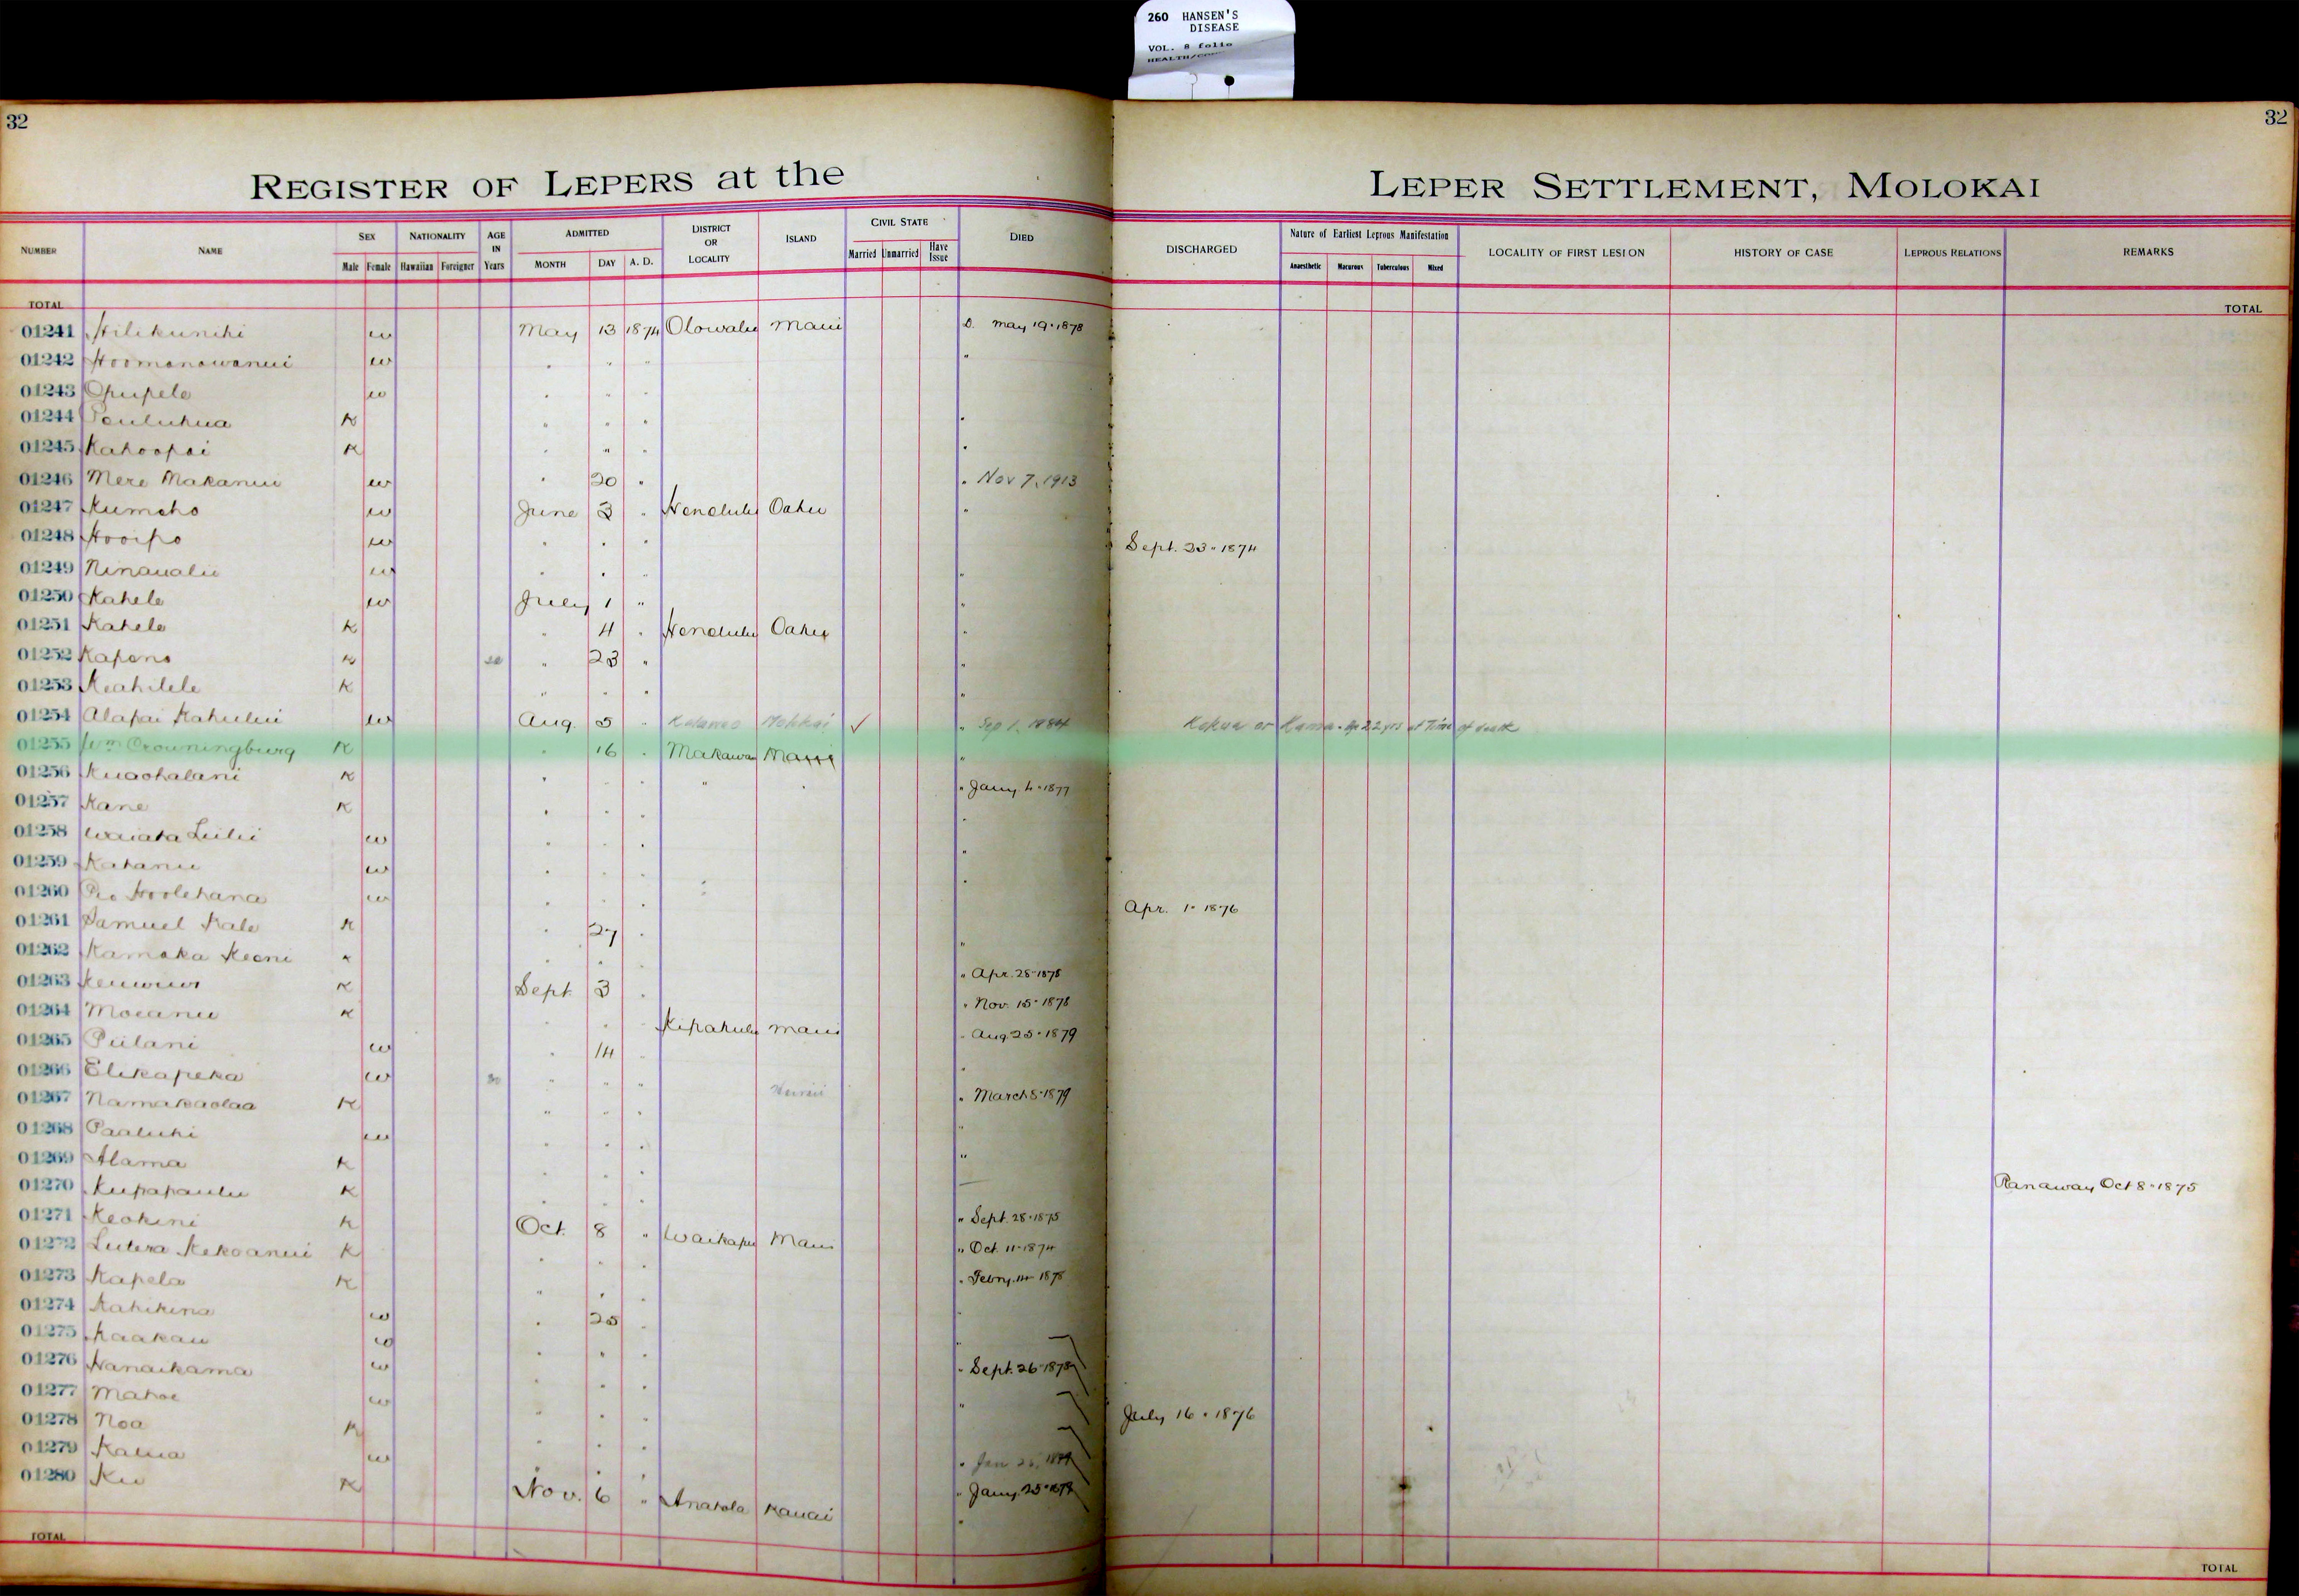 260 HANSEN'S
DISEASE
VOL. 8 folio
32
32
REGISTER OF LEPERS at the LEPER SETTLEMENT, MOLOKAI
NUMBER NAME SEX NATIONALITY AGE IN Years ADMITTED DISTRICT OR LOCALITY ISLAND CIVIL STATE DIED DISCHARGED Nature of Earliest Leprous Manifestation LOCALITY OF FIRST LESION HISTORY OF CASE LEPROUS RELATIONS REMARKS
Male Female Hawaiian Foreigner MONTH DAY A. D. Married Unmarried Have Issue Anaesthetic Macurous Tuberculous Mixed
TOTAL TOTAL
01241 Hilikunihi w May 13 1874 Olowalu Maui D. May 19. 1878
01242 Hoomanawanui w " " " "
01243 Opupele w " " "
01244 K " " " "
01245 Kahoopai K " " " "
01246 Mere Makanui w " 20 " " Nov 7, 1913
01247 Kumeho w June 3 " Honolulu Oahu "
01248 Hooipo w " " " Sept. 23. 1874
01249 Ninaualii w " " " "
01250 Kahele w July 1 " "
01251 Kahele K " 4 " Honolulu Oahu "
01252 Kapono K " 23 " "
01253 Keahilele K " " " "
01254 Alapai Kahului w Aug. 5 " ✓ " Sep 1, 1884 Kokua or Kama. Age 22 yrs at Time of death
01255 Wm Crowningburg K " 16 " Makawao Maui "
01256 Kuaohalani K " " " " " " Jany 4. 1877
01257 Kane K " " " "
01258 Waiaka Liilii w " " " "
01259 Kahanu w " " " "
01260 Hoolehana w " " " Apr. 1. 1876
01261 Samuel Kale K " 27 " "
01262 Kamaka Keoni K " " " " Apr. 28. 1878
01263 K Sept. 3 " " Nov. 15. 1878
01264 Moeanu K " " " Kipahulu Maui " Aug 25. 1879
01265 Piilani w " 14 " "
01266 Elikapeka w " " " Hawaii " March 8. 1879
01267 Namakaolaa K " " " "
01268 Paaluhi w " " " "
01269 Alama K " " "
01270 Kupapaulu K " " " " Sept. 28. 1875 Ranaway Oct 8. 1875
01271 Keokini K Oct. 8 " Waikapu Maui " Oct. 11. 1874
01272 Lutera Kekoanui K " " " " Febry. 14 1878
01273 Kapela K " " " "
01274 Kahikina w " 25 " "
01275 Kaakau w " " " " Sept. 26. 1878
01276 Nanaikama w " " " "
01277 Mahoe w " " " July 16. 1876
01278 Noa K " " " " Jan
01279 Kalua w " " " " Jany. 25.
01280 Ku K Nov. 6 " Anahola Kauai "
TOTAL TOTAL